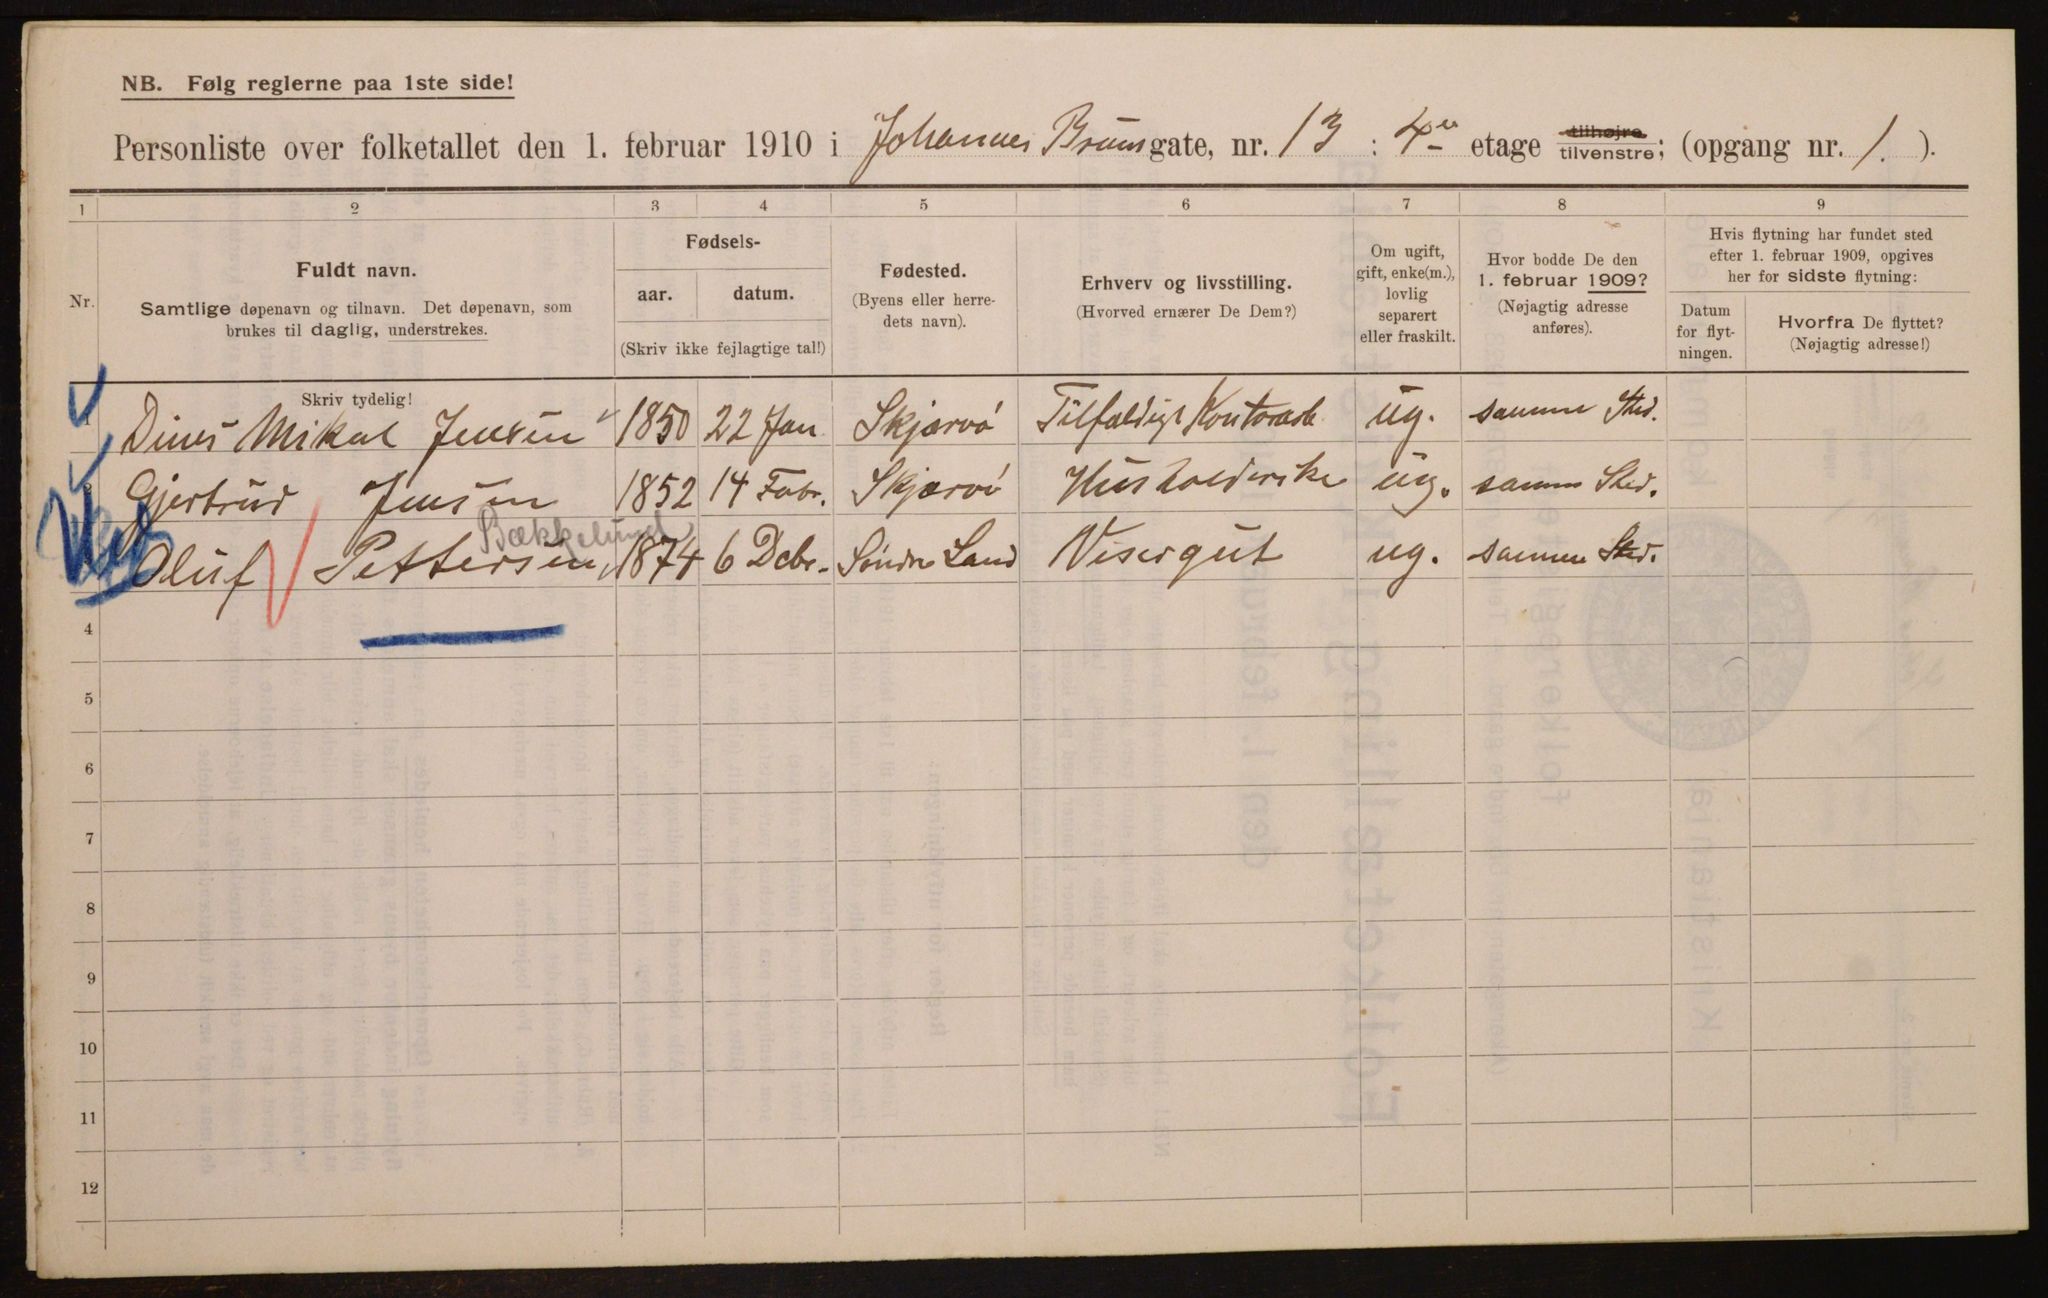 NB. Følg reglerne paa 1ste side!
Personliste over folketallet den 1. februar 1910 i Johannes Brunsgate, nr. 13 : 4de etage tilhøjre tilvenstre; (opgang nr. 1. ).
1 2 3 4 5 6 7 8 9
Nr.
Fuldt navn.
Samtlige døpenavn og tilnavn. Det døpenavn, som
brukes til daglig, understrekes.
Fødsels-
aar. datum.
(Skriv ikke fejlagtige tal!)
Fødested.
(Byens eller herre-
dets navn).
Erhverv og livsstilling.
(Hvorved ernærer De Dem?)
Om ugift,
gift, enke(m.),
lovlig
separert
eller fraskilt.
Hvor bodde De den
1. februar 1909?
(Nøjagtig adresse
anføres).
Hvis flytning har fundet sted
efter 1. februar 1909, opgives
her for sidste flytning:
Datum
for flyt-
ningen.
Hvorfra De flyttet?
(Nøjagtig adresse!)
Skriv tydelig!
1 Dines Mikal Jensen 1850 22 Jan Skjærvö Tilfældigt Kontorarb ug. samme Sted.
2 Gjertrud Jensen 1852 14 Febr. Skjærvö Husholderske ug. samme Sted.
Bækkelund
Oluf Pettersen 1874 6 Dcbr. Söndre Land Visergut ug. samme Sted.
4
5
6
7
8
9
10
11
12